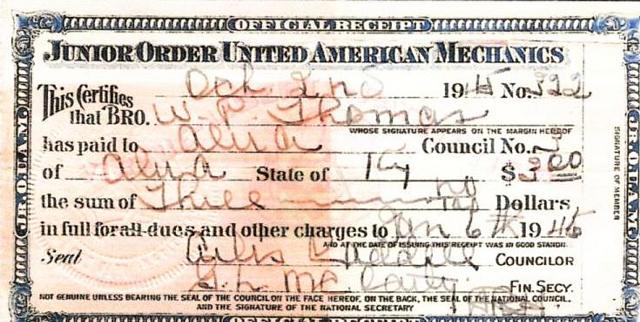 OFFICIAL RECEIPT
JUNIOR ORDER UNITED AMERICAN MECHANICS
Oct 2nd 1945 No. 322
This Certifies that BRO. W. P. Thomas
WHOSE SIGNATURE APPEARS ON THE MARGIN HEREOF
has paid to Alva Council No. 3
of Alva State of Ky $3.00
the sum of Three no/100 Dollars
in full for all dues and other charges to Jan 6th 1946
AND AT THE DATE OF ISSUING THIS RECEIPT WAS IN GOOD STANDING
Seal COUNCILOR
G. L. FIN. SECY.
NOT GENUINE UNLESS BEARING THE SEAL OF THE COUNCIL ON THE FACE HEREOF, ON THE BACK, THE SEAL OF THE NATIONAL COUNCIL,
AND THE SIGNATURE OF THE NATIONAL SECRETARY
OFFICIAL RECEIPT
SIGNATURE OF MEMBER